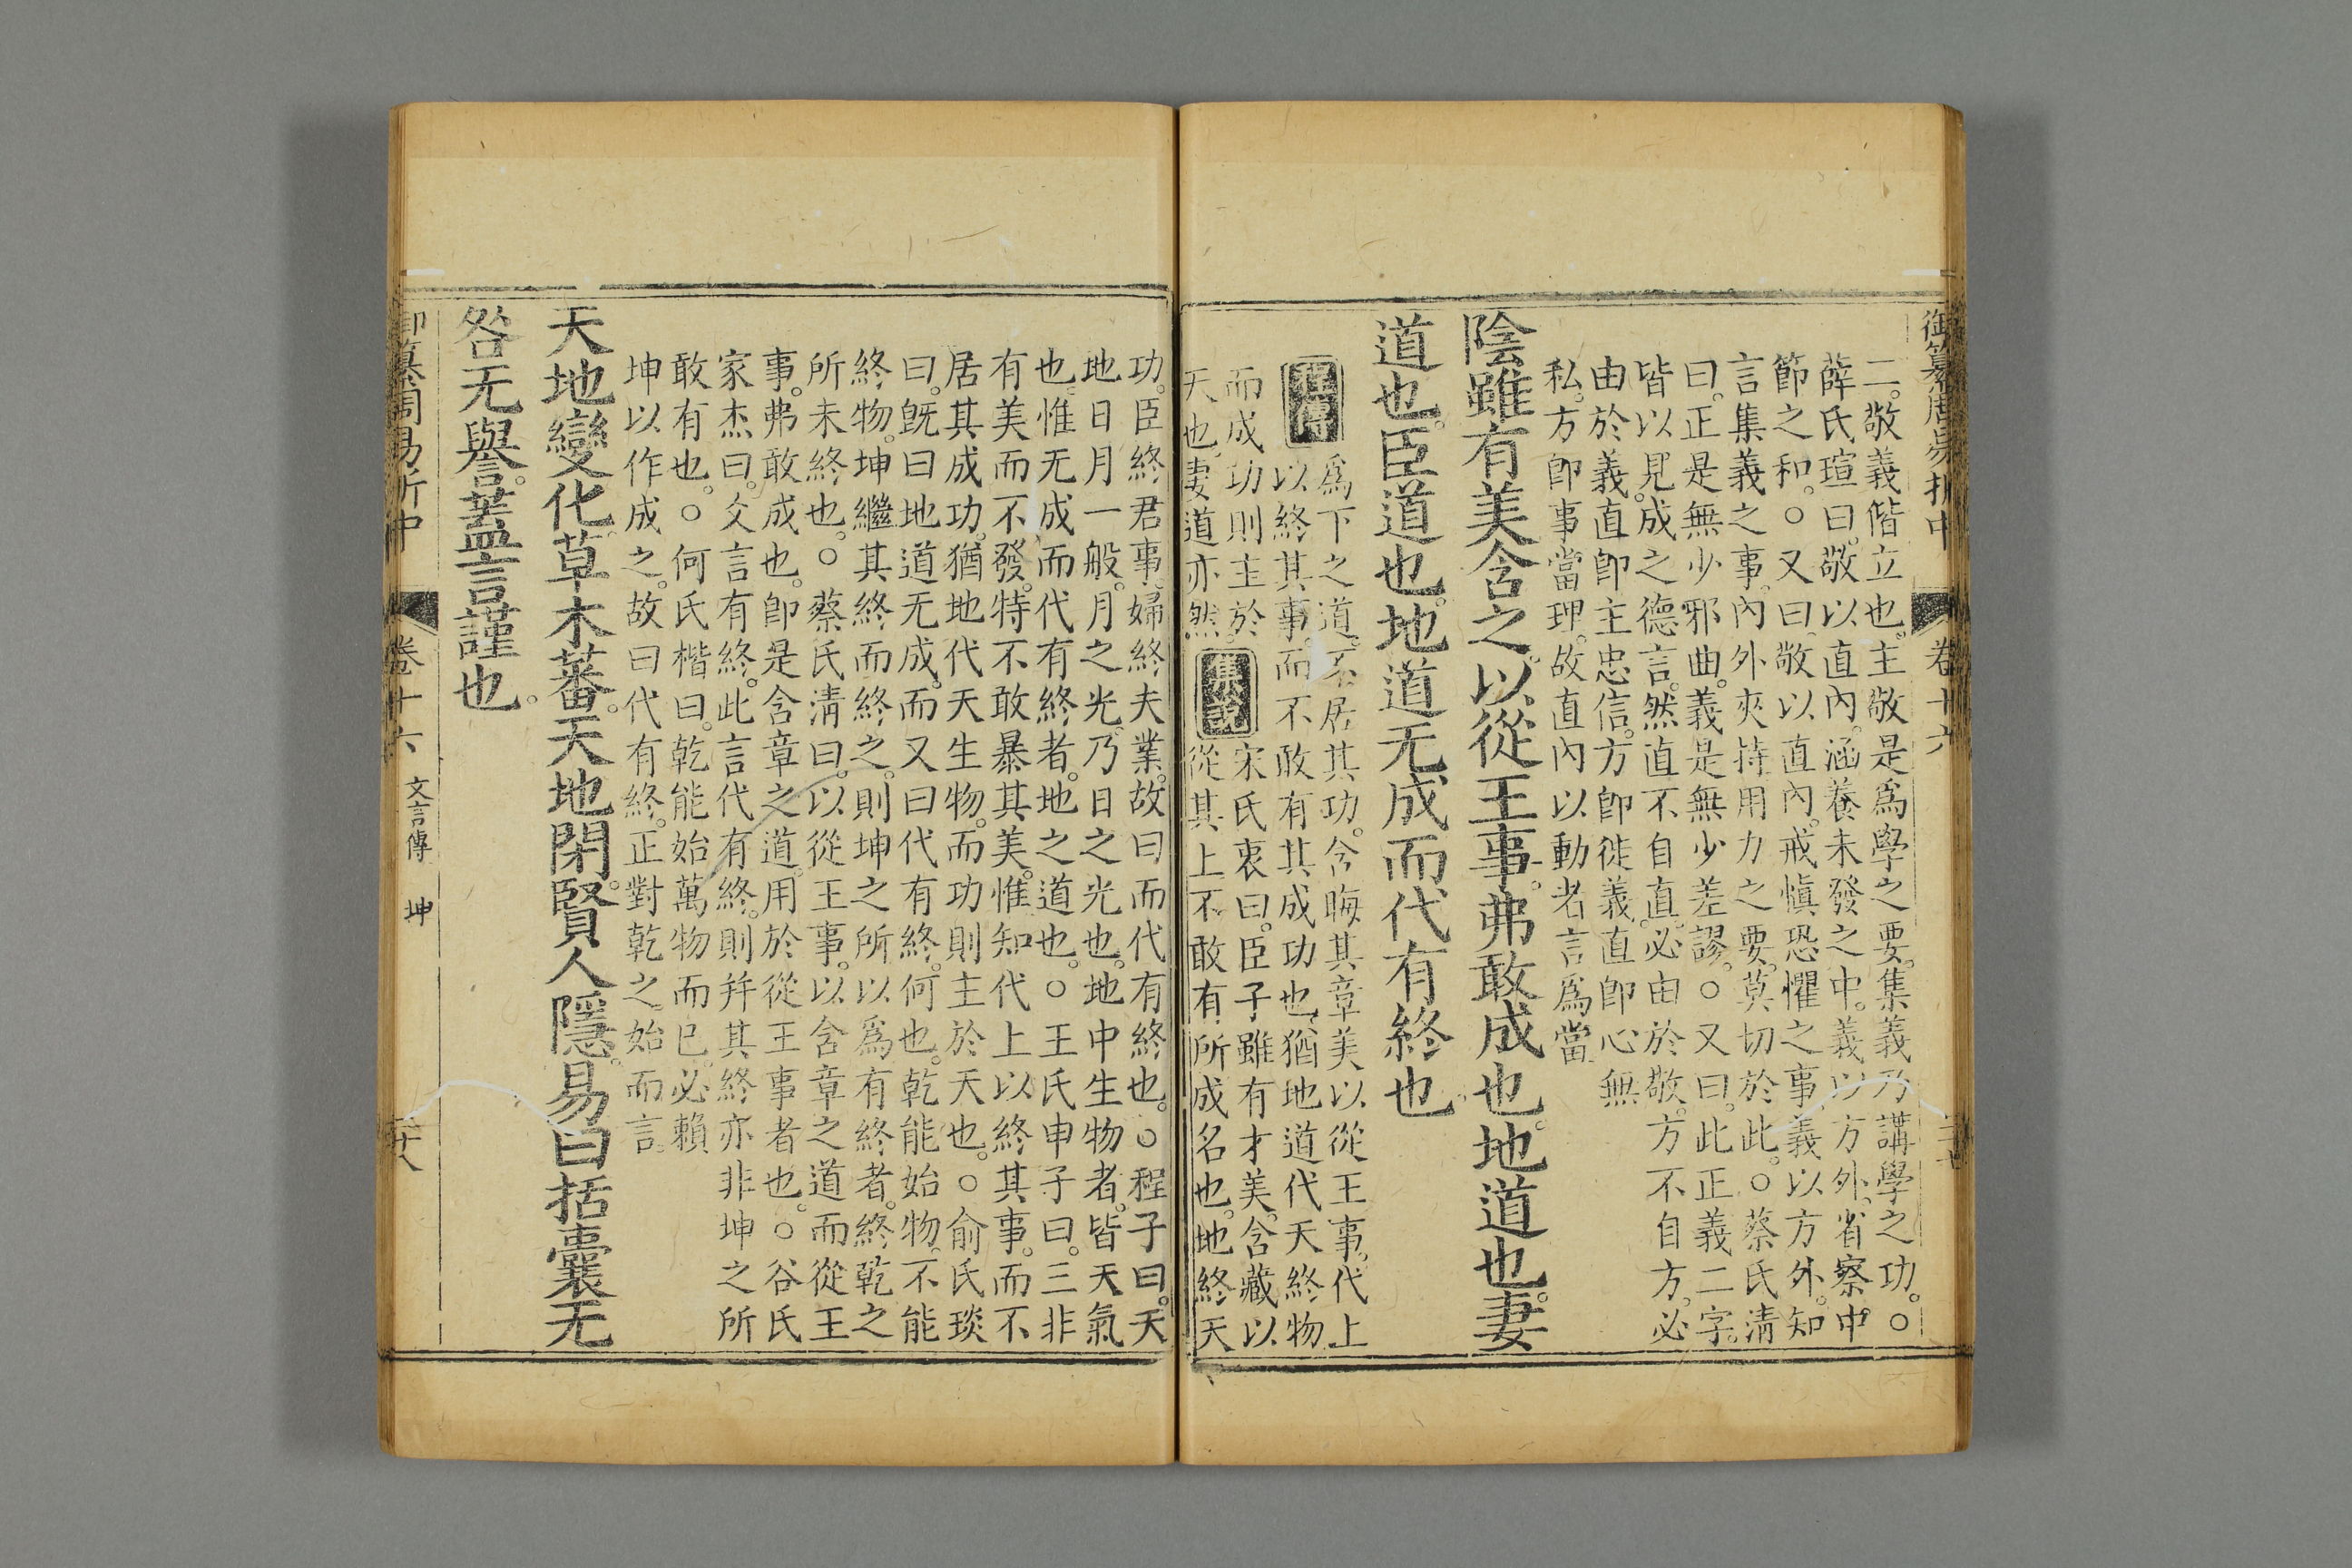 御纂周易折中 卷十六
二。敬義偕立也。主敬是爲學之要。集義乃講學之功。○
薛氏瑄曰。敬以直內。涵養未發之中。義以方外。省察中
節之和。○又曰。敬以直內。戒愼恐懼之事。義以方外。知
言集義之事。內外夾持用力之要。莫切於此。○蔡氏淸
曰。正是無少邪曲。義是無少差謬。○又曰。此正義二字。
皆以見成之德言。然直不自直。必由於敬。方不自方。必
由於義。直卽主忠信。方卽徙義。直卽心無
私。方卽事當理。故直內以動者言爲當
陰雖有美含之。以從王事。弗敢成也。地道也。妻
道也。臣道也。地道无成而代有終也。
程傳 爲下之道。不居其功。含晦其章美以從王事。代上
以終其事。而不敢有其成功也。猶地道代天終物
而成功則主於
天也。妻道亦然。 集說 宋氏衷曰。臣子雖有才美。含藏以
從其上不敢有所成名也。地終天
功。臣終君事。婦終夫業。故曰而代有終也。○程子曰。天
地日月一般。月之光。乃日之光也。地中生物者。皆天氣
也。惟无成而代有終者。地之道也。○王氏申子曰。三非
有美而不發。特不敢暴其美。惟知代上以終其事。而不
居其成功。猶地代天生物。而功則主於天也。○俞氏琰
曰。旣曰地道无成。而又曰代有終。何也。乾能始物。不能
終物。坤繼其終而終之。則坤之所以爲有終者。終乾之
所未終也。○蔡氏淸曰。以從王事。以含章之道而從王
事。弗敢成也。卽是含章之道。用於從王事者也。○谷氏
家杰曰。文言有終。此言代有終。則幷其終亦非坤之所
敢有也。○何氏楷曰。乾能始萬物而已。必賴
坤以作成之。故曰代有終。正對乾之始而言
天地變化。草木蕃。天地閉。賢人隱。易曰括囊无
咎无譽。蓋言謹也。
御纂周易折中 卷十六 文言傳 坤